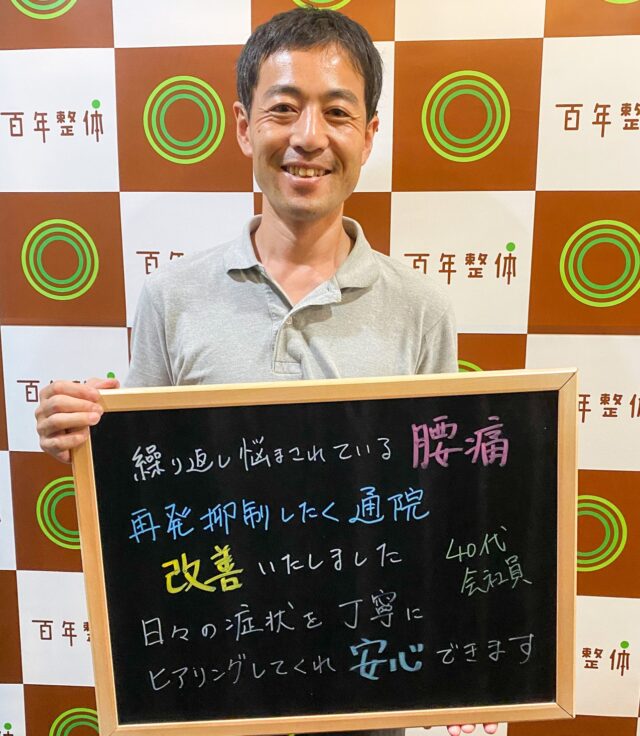 百年整体
百年整体
百年整体
百年整体
百年整体
繰り返し悩まされている 腰痛
再発抑制したく通院
改善いたしました
40代
会社員
日々の症状を丁寧に
ヒアリングしてくれ 安心できます